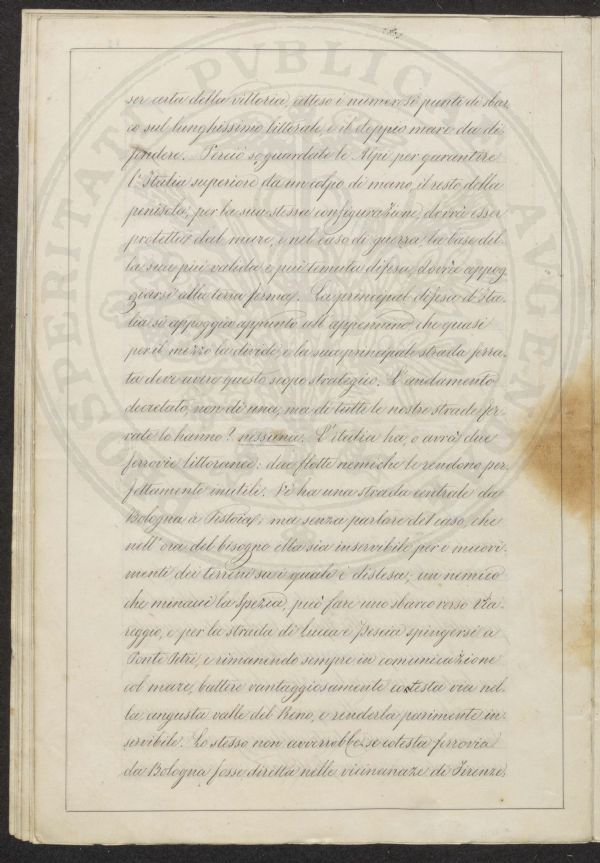 PROSPERITATI PVBLICAE AVGENDAE
ser certa della vittoria, atteso i numerosi punti di sbar,
co sul lunghissimo littorale, e il doppio mare da di,
fendere. Perciò sguardate le Alpi per garantire
l'Italia superiore da un colpo di mano, il resto della
penisola, per la sua stessa configurazione, dovrà esser
protetta dal mare, e nel caso di guerra la base del,
la sua più valida e più temuta difesa, dovrà appog,
giarsi alla terra ferma. La principal difesa d'Ita,
lia si appoggia appunto all'appennino che quasi
per il mezzo la divide, e la sua principale strada ferra,
ta deve avere questo scopo strategico. L'andamento
decretato, non di una, ma di tutte le nostre strade fer,
rate lo hanno? nessuna. L'italia ha, o avrà due
ferrovie littoranee: due flotte nemiche le rendono per,
fettamente inutili. Vi ha una strada centrale da
Bologna a Pistoia; ma senza parlare del caso, che
nell'ora del bisogno ella sia inservibile per i muovi,
menti dei terreni su i quale è distesa, un nemico
che minacci la Spezia, può fare uno sbarco verso Via,
reggio, e per la strada di Lucca e Pescia spingersi a
Ponte Petri, e rimanendo sempre in comunicazione
col mare, battere vantaggiosamente cotesta via nel,
la angusta valle del Reno, e renderla parimente in,
servibile. Lo stesso non avverrebbe se cotesta ferrovia
da Bologna fosse diretta nelle vicinanaze di Firenze,